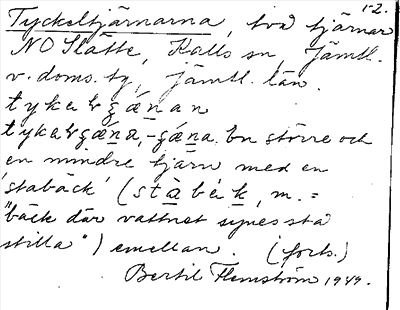 1-2.
Tyckeltjärnarna, två tjärnar
NO Slätte, Kalls sn, Jämtl.
v. doms. tg, Jämtl. län.
tykalgǽnan
tykalgǽna, -gǽna. En större och
en mindre tjärn med en
'stabäck' (stàbék, m. =
"bäck där vattnet synes stå
stilla") emellan. (forts.)
Bertil Flemström 1949.